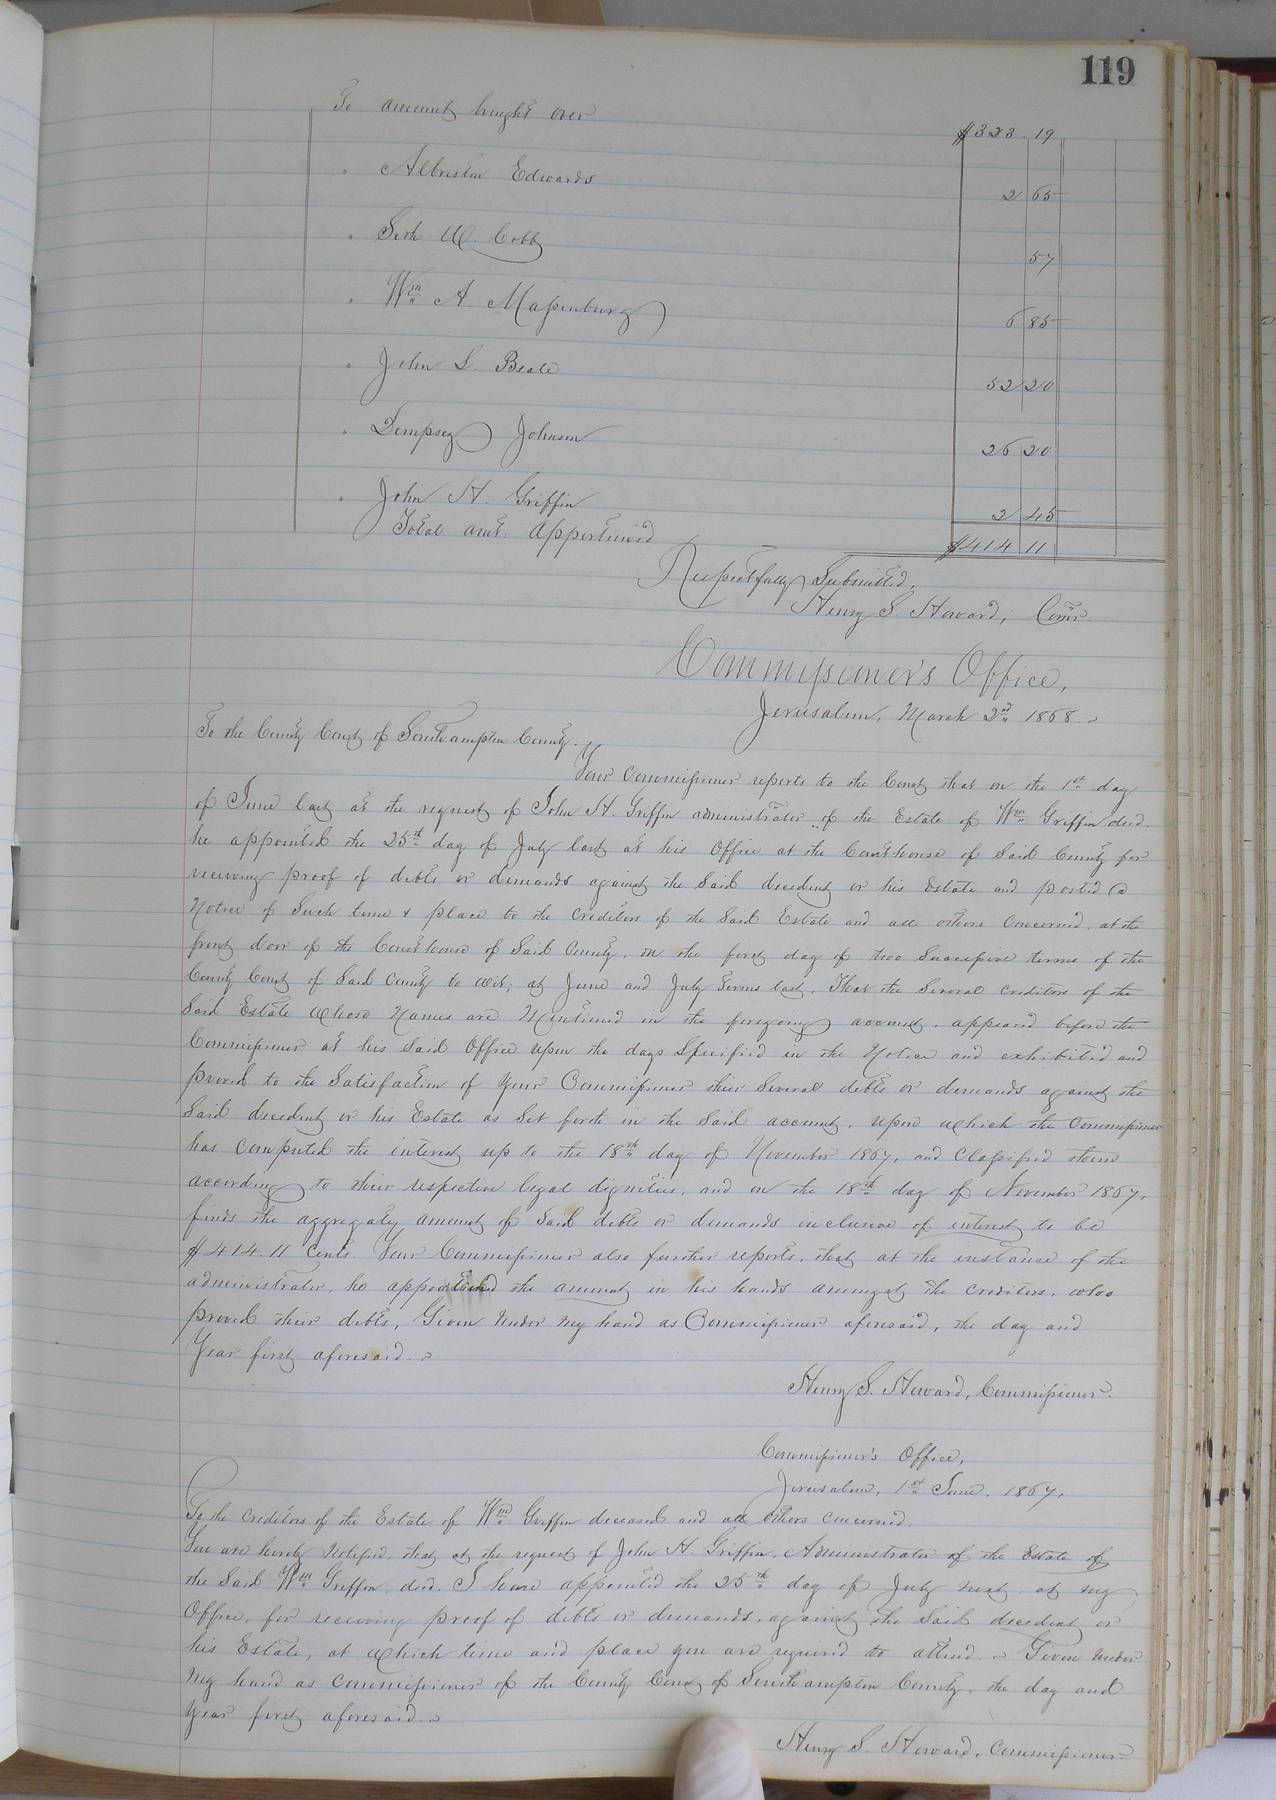 119
To amount brought over $323.19
" Albriston Edwards 2 65
" Seth W. Cobb 57
" Wm A. Massenburg 6 85
" John S. Beale 52 20
" Dempsey Johnson 26 20
" John H. Griffin 2 45
Total amt. apportioned $414 11
Respectfully Submitted,
Henry S. Howard, Comr
Commissioner's Office,
Jerusalem, March 2nd 1868.
To the County Court of Southampton County.
Your Commissioner reports to the Court that on the 1st day
of June last at the request of John H. Griffin administrator of the Estate of Wm Griffin decd.
he appointed the 25th day of July last at his Office at the Courthouse of Said County for
receiving proof of debts or demands against the Said decedent or his Estate and posted a
Notice of Such time & place to the creditors of the Said Estate and all others Concerned, at the
front door of the Courthouse of Said County, on the first day of two Successive terms of the
County Court of Said County to wit; at June and July Terms last, That the Several creditors of the
Said Estate whose Names are Mentioned in the foregoing account, appeared before the
Commissioner at his Said Office upon the days Specified in the Notice and exhibited and
proved to the Satisfaction of your Commissioner their Several debts or demands against the
Said decedent or his Estate as Set forth in the Said account, upon which the Commissioner
has computed the interest up to the 18th day of November 1867, and Classified them
according to their respective legal dignities, and on the 18th day of November 1867,
finds the aggregate amount of Said debts or demands inclusive of interest to be
$414.11 Cents. Your Commissioner also further reports, that at the instance of the
administrator, he apportioned the amount in his hands amongst the creditors, who
proved their debts, Given under my hand as Commissioner aforesaid, the day and
Year first aforesaid.
Henry S. Howard, Commissioner.
Commissioner's Office,
Jerusalem, 1st June, 1867,
To the creditors of the Estate of Wm Griffin deceased and all others concerned.
You are hereby Notified, that at the request of John H. Griffin, Administrator of the Estate of
the Said Wm Griffin, decd. I have appointed the 25th day of July next at my
Office, for receiving proof of debts or demands, against the Said decedent or
his Estate, at which time and place you are required to attend. Given under
My hand as Commissioner of the County Court of Southampton County, the day and
year first aforesaid.
Henry S. Howard, Commissioner.